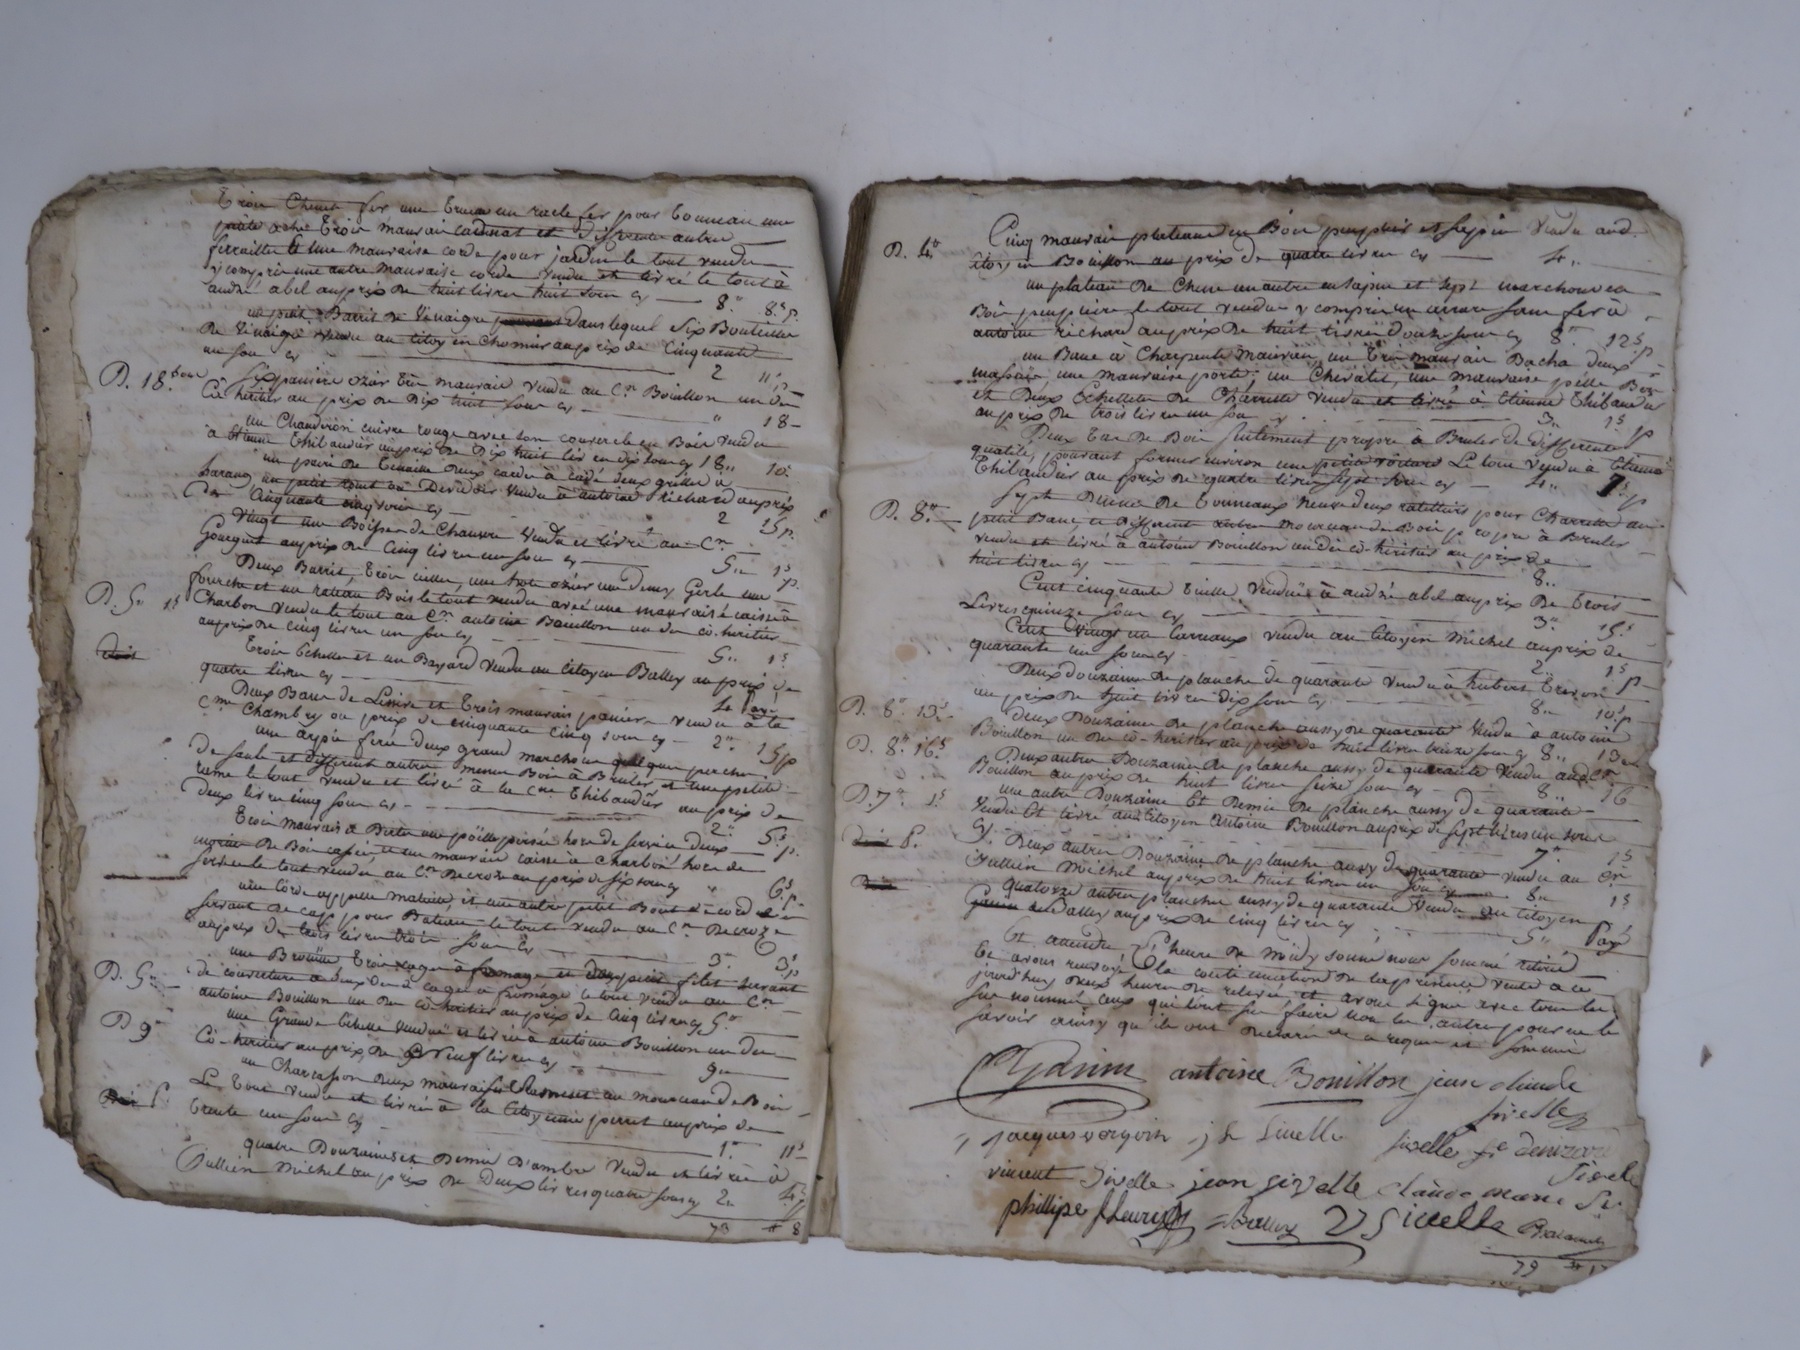 trois Chenet fer une un racle fer pour tonneau une
petite ache trois mauvais cadenat et different autre
ferraille et une mauvaise corde pour jardin le tout vendu
y compris une autre mauvaise corde vendu et livré le tout à
andré abel au prix de huit livres huit sous cy — 8" 8s p.
un petit Barrit de Vinaigre dans lequel Six Bouteilles
de Vinaigre vendu au Citoyen Chomier au prix de Cinquante
un sou cy — 2 11s p
D. 18 sous Six paniers ozier très mauvais vendu au Cen Bouillon un des
Co-heritier au prix de Dix huit sous cy — " 18 —
un Chaudron cuivre rouge avec son couvercle en Bois vendu
à Etienne Thibaudier au prix de Dix huit livres dix sous cy 18" 10s
un paire de tenaille deux deux grilles à
harang un petit Devidoir vendu à antoine richard au prix
de Cinquante cinq sous cy — 2 15 p.
Vingt un Boisseau de Chanvre Vendu et livré au Cen
Goueguet au prix de Cinq livres un sou cy — 5" 1s p.
Deux Barrit, trois une ozier un Demy Gerle une
fourche et un rateau Bois le tout vendu avec une mauvaise caisse à
D. 5" 1s Charbon vendu le tout au Cen antoine Bouillon un des co-heritier
au prix de cinq livres un sou cy — 5" 1s
trois Echelle et un Bayard Vendu au Citoyen Balley au prix de
quatre livres cy — 4 Payé
Deux Banc de Lessive et trois mauvais panier vendu à la
Cne Chambry au prix de cinquante cinq sous cy — 2" 15 p
une ferré deux grand marchoux quelque perches
de saule et different autre menu Bois à Bruler et une petite
rame le tout vendu et livré à la Cne Thibaudier au prix de
deux livres cinq sous cy — 2" 5s p.
trois mauvais une poille percée hors de service deux
de Bois cassée, et un mauvais caisse à charbon hors de
service le tout vendu au Cen Decroze au prix de six sous cy " 6s p.
une Corde appellé maleine, et une autre petit Bout de corde
servant de cape pour Bateau le tout vendu au Cen Decroze
au prix de trois livres trois sous cy — 3" 3s p
une trois cage à fromage et deux filet servant
de couverture à deux cage à fromage le tout vendu au Cen
D. 5" antoine Bouillon un des co-heritier au prix de cinq livres cy 5"
une Grande Echelle vendue et livrée à antoine Bouillon un des
D 9" Co-heritier au prix de Neuf livres cy — 9"
un Charasson deux mauvais un mourceau de Bois
Le tout vendu et livré à la Citoyenne perret au prix de
trente un sous cy — 1" 11s
quatre Douzaines et Demie D'ambre vendu et livrée à
Jullien Michel au prix de Deux livres quatre sous cy 2" 4s
73 # 8
Cinq mauvais plateaux en Bois peuplier et sapin Vendu aud.
D. 4" Citoyen Bouillon au prix de quatre livres cy — 4"
un plateau de Chene un autre en sapin et sept marchoux en
Bois peupliers le tout vendu y compris un arrare sans fer à
antoine richard au prix de huit livres Douze sous cy 8" 12s p
un Banc à Charpente mauvais, un très mauvais Bacha deux
massai, une mauvaise porte, un Chevalet, une mauvaise pelle Bois
et Deux Echellettes de Charrette vendu et livré à Etienne Thibaudier
au prix de trois livres un sou cy — 3" 1s p
Deux tas de Bois seulement propre à Bruler de differente
qualité, pouvant former environ une petite voiture Le tout Vendu à Etienne
Thibaudier au prix de quatre livres sept sous cy — 4" 7s p
Sept Douve de tonneaux Neuve deux ratelliers pour Charrette un
D. 8" petit Banc, et different autre mourceau de Bois propre à Bruler
vendu et livré à antoine Bouillon un des co-heritier au prix de
huit livres cy — 8"
Cent cinquante tuille, vendue à andré abel au prix De trois
Livres quinze sous cy — 3" 15s
Cent Vingt un Carreaux vendu au Citoyen Michel au prix de
quarante un sous cy — 2" 1s p
Deux douzaine de planche de quarante vendu à hubert
au prix de huit livres dix sous cy — 8" 10s p
D. 8" 13s deux Douzaine de planche aussy de quarante vendu à antoine
Bouillon un des co-heritier au prix de huit livres treize sous cy 8" 13
D. 8" 16s Deux autre Douzaine de planche aussy de quarante vendu aud Cen
Bouillon au prix de huit livres seize sous cy — 8" 16
D. 7" 1s une autre Douzaine et Demie de planche aussy de quarante
vendu et livré au Citoyen Antoine Bouillon au prix de sept livres un sous
cy — 7" 1s
Deux autre Douzaine de planche aussy de quarante vendu au Cen
Jullien Michel au prix de huit livres un sou cy — 8" 1s
quatorze autre planche aussy de quarante vendu au Citoyen
Balley au prix de cinq livres cy — 5" Payé
Et attendu l'heure de Midy sonné nous sommes retiré
et avons renvoyé la continuation de la presente vente à ce
jourd'huy deux heure de relevée, et avons signé avec tous les
sus nommé, ceux qui l'ont sçu faire non les autre pour ne le
savoir ainsy qu'ils ont declaré de ce requis et sommé
antoine Bouillon jean claude
sivelle
jacques vergoin j h Sivelle sivelle fs denizard
vincent Sivelle jean sivelle Claude
phillipe fleury Balley Sivelle
79 #